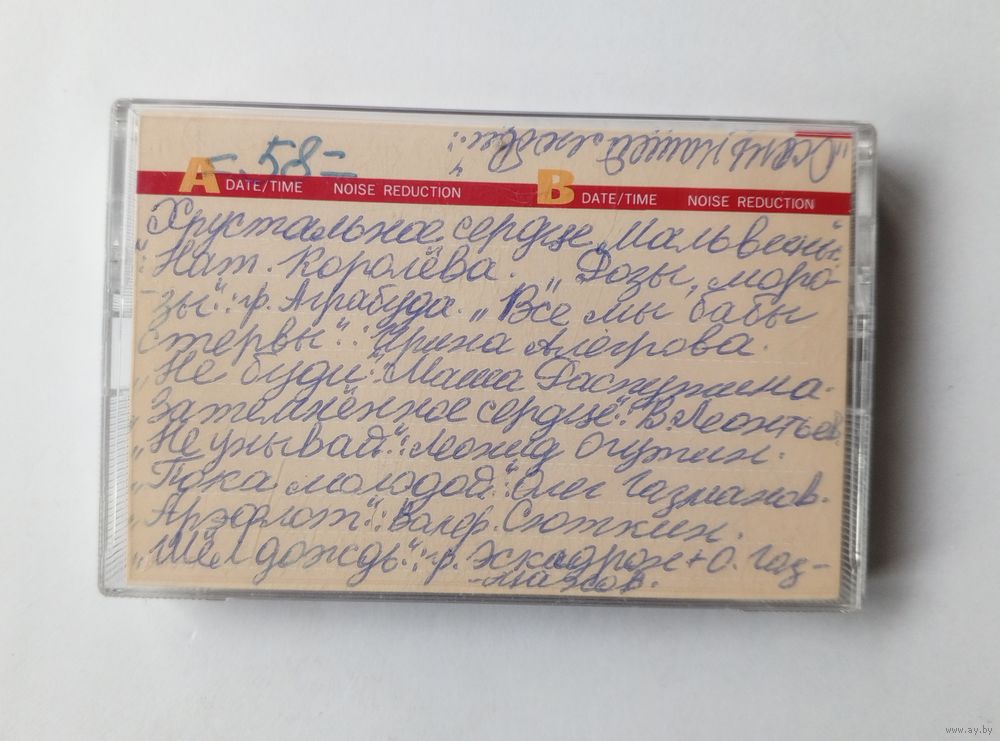 „Осень нашей любви":
58=
A DATE/TIME NOISE REDUCTION B DATE/TIME NOISE REDUCTION
„Хрустальное сердце Мальвены"
: Нат. Королёва. „Розы, моро-
-зы": гр. Аграбуда. „Все мы бабы
стервы": Ирина Алегрова.
„Не буди": Маша Распутина.
„Затемнённое сердце": В. Леонтьев.
„Не унывай": Леонид Агутин.
„Пока молодой": Олег Газманов.
„Аэрофлот": Валер. Сюткин.
„Шёл дождь": гр. Эскадрон + О. Газ-
-манов.
www.ay.by